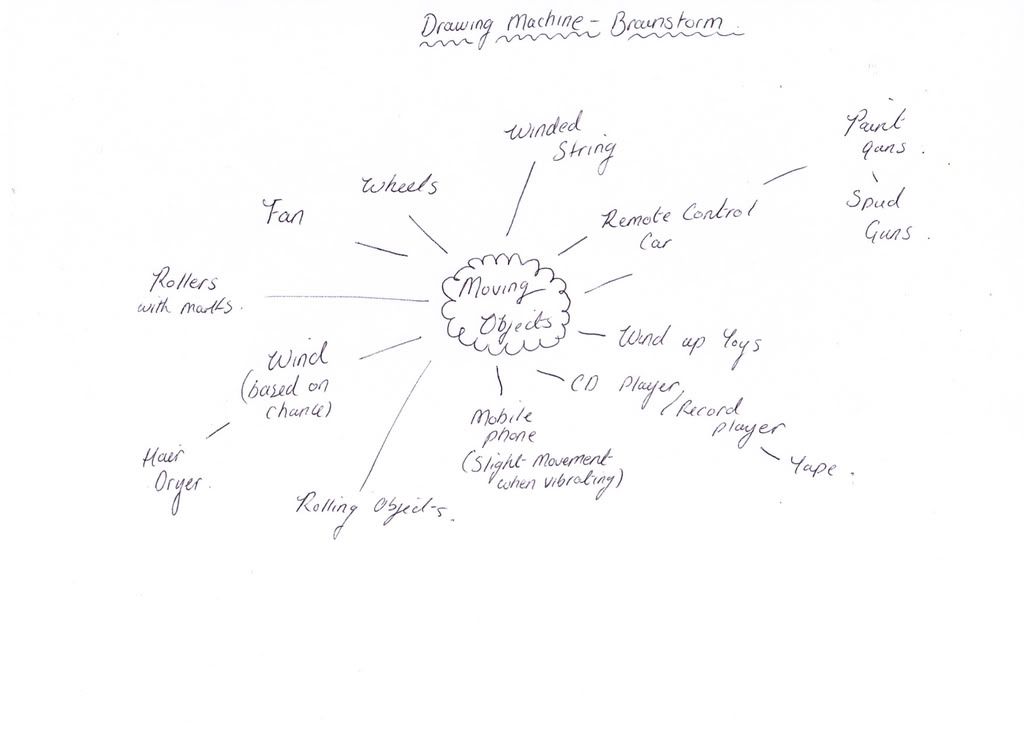 Drawing Machine - Brainstorm.
Winded
String
Paint
guns.
Spud
Guns.
Wheels
Fan
Remote Control
Car
Rollers
with marks.
Moving
Objects
Wind up Toys
Wind
(based on
chance)
CD Player/
Record
player
Tape.
Mobile
phone
(Slight Movement
when vibrating)
Hair
Dryer.
Rolling Objects.